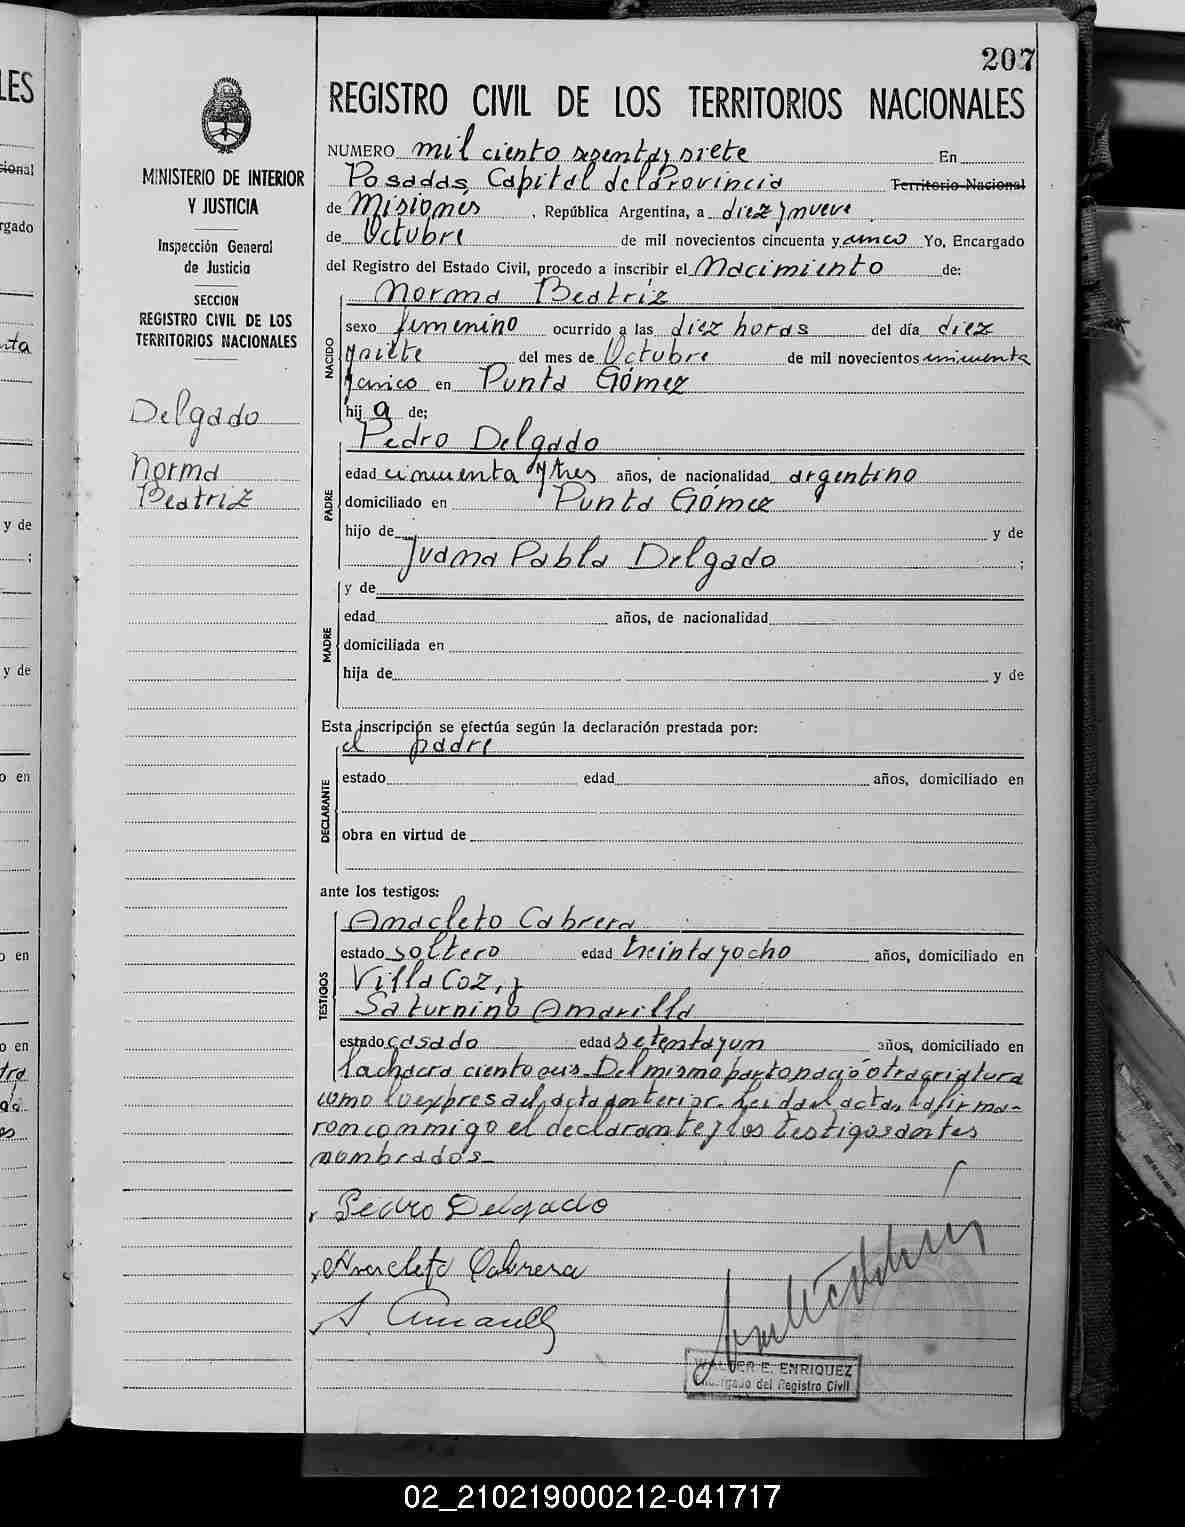 207
LES
sional
rgado
nta
y de
;
y de
o en
o en
o en
MINISTERIO DE INTERIOR
Y JUSTICIA
Inspección General
de Justicia
SECCION
REGISTRO CIVIL DE LOS
TERRITORIOS NACIONALES
Delgado
Norma
Beatriz
REGISTRO CIVIL DE LOS TERRITORIOS NACIONALES
NUMERO mil ciento sesenta y siete En
Posadas, Capital de la Provincia Territorio Nacional
de Misiones , República Argentina, a diez y nueve
de Octubre de mil novecientos cincuenta y cinco Yo, Encargado
del Registro del Estado Civil, procedo a inscribir el Nacimiento de:
Norma Beatriz
NACIDO
sexo femenino ocurrido a las diez horas del día diez
y siete del mes de Octubre de mil novecientos cincuenta
y cinco en Punta Gómez
hij a de;
Pedro Delgado
PADRE
edad cincuenta y tres años, de nacionalidad argentino
domiciliado en Punta Gómez
hijo de y de
Juana Pabla Delgado ;
y de
MADRE
edad años, de nacionalidad
domiciliada en
hija de y de
Esta inscripción se efectúa según la declaración prestada por:
el padre
DECLARANTE
estado edad años, domiciliado en
obra en virtud de
ante los testigos:
Anacleto Cabrera
TESTIGOS
estado soltero edad treinta y ocho años, domiciliado en
Villa Coz, y
Saturnino Amarilla
estado casado edad setenta y un años, domiciliado en
la chacra ciento Del mismo parto nació otra criatura
como lo expresa el acta anterior. Leída el acta, la firma-
ron conmigo el declarante y los testigos antes
nombrados_
Pedro Delgado
Anacleto Cabrera
S. Amarilla
WALTER E. ENRIQUEZ
Encargado del Registro Civil
02_210219000212-041717